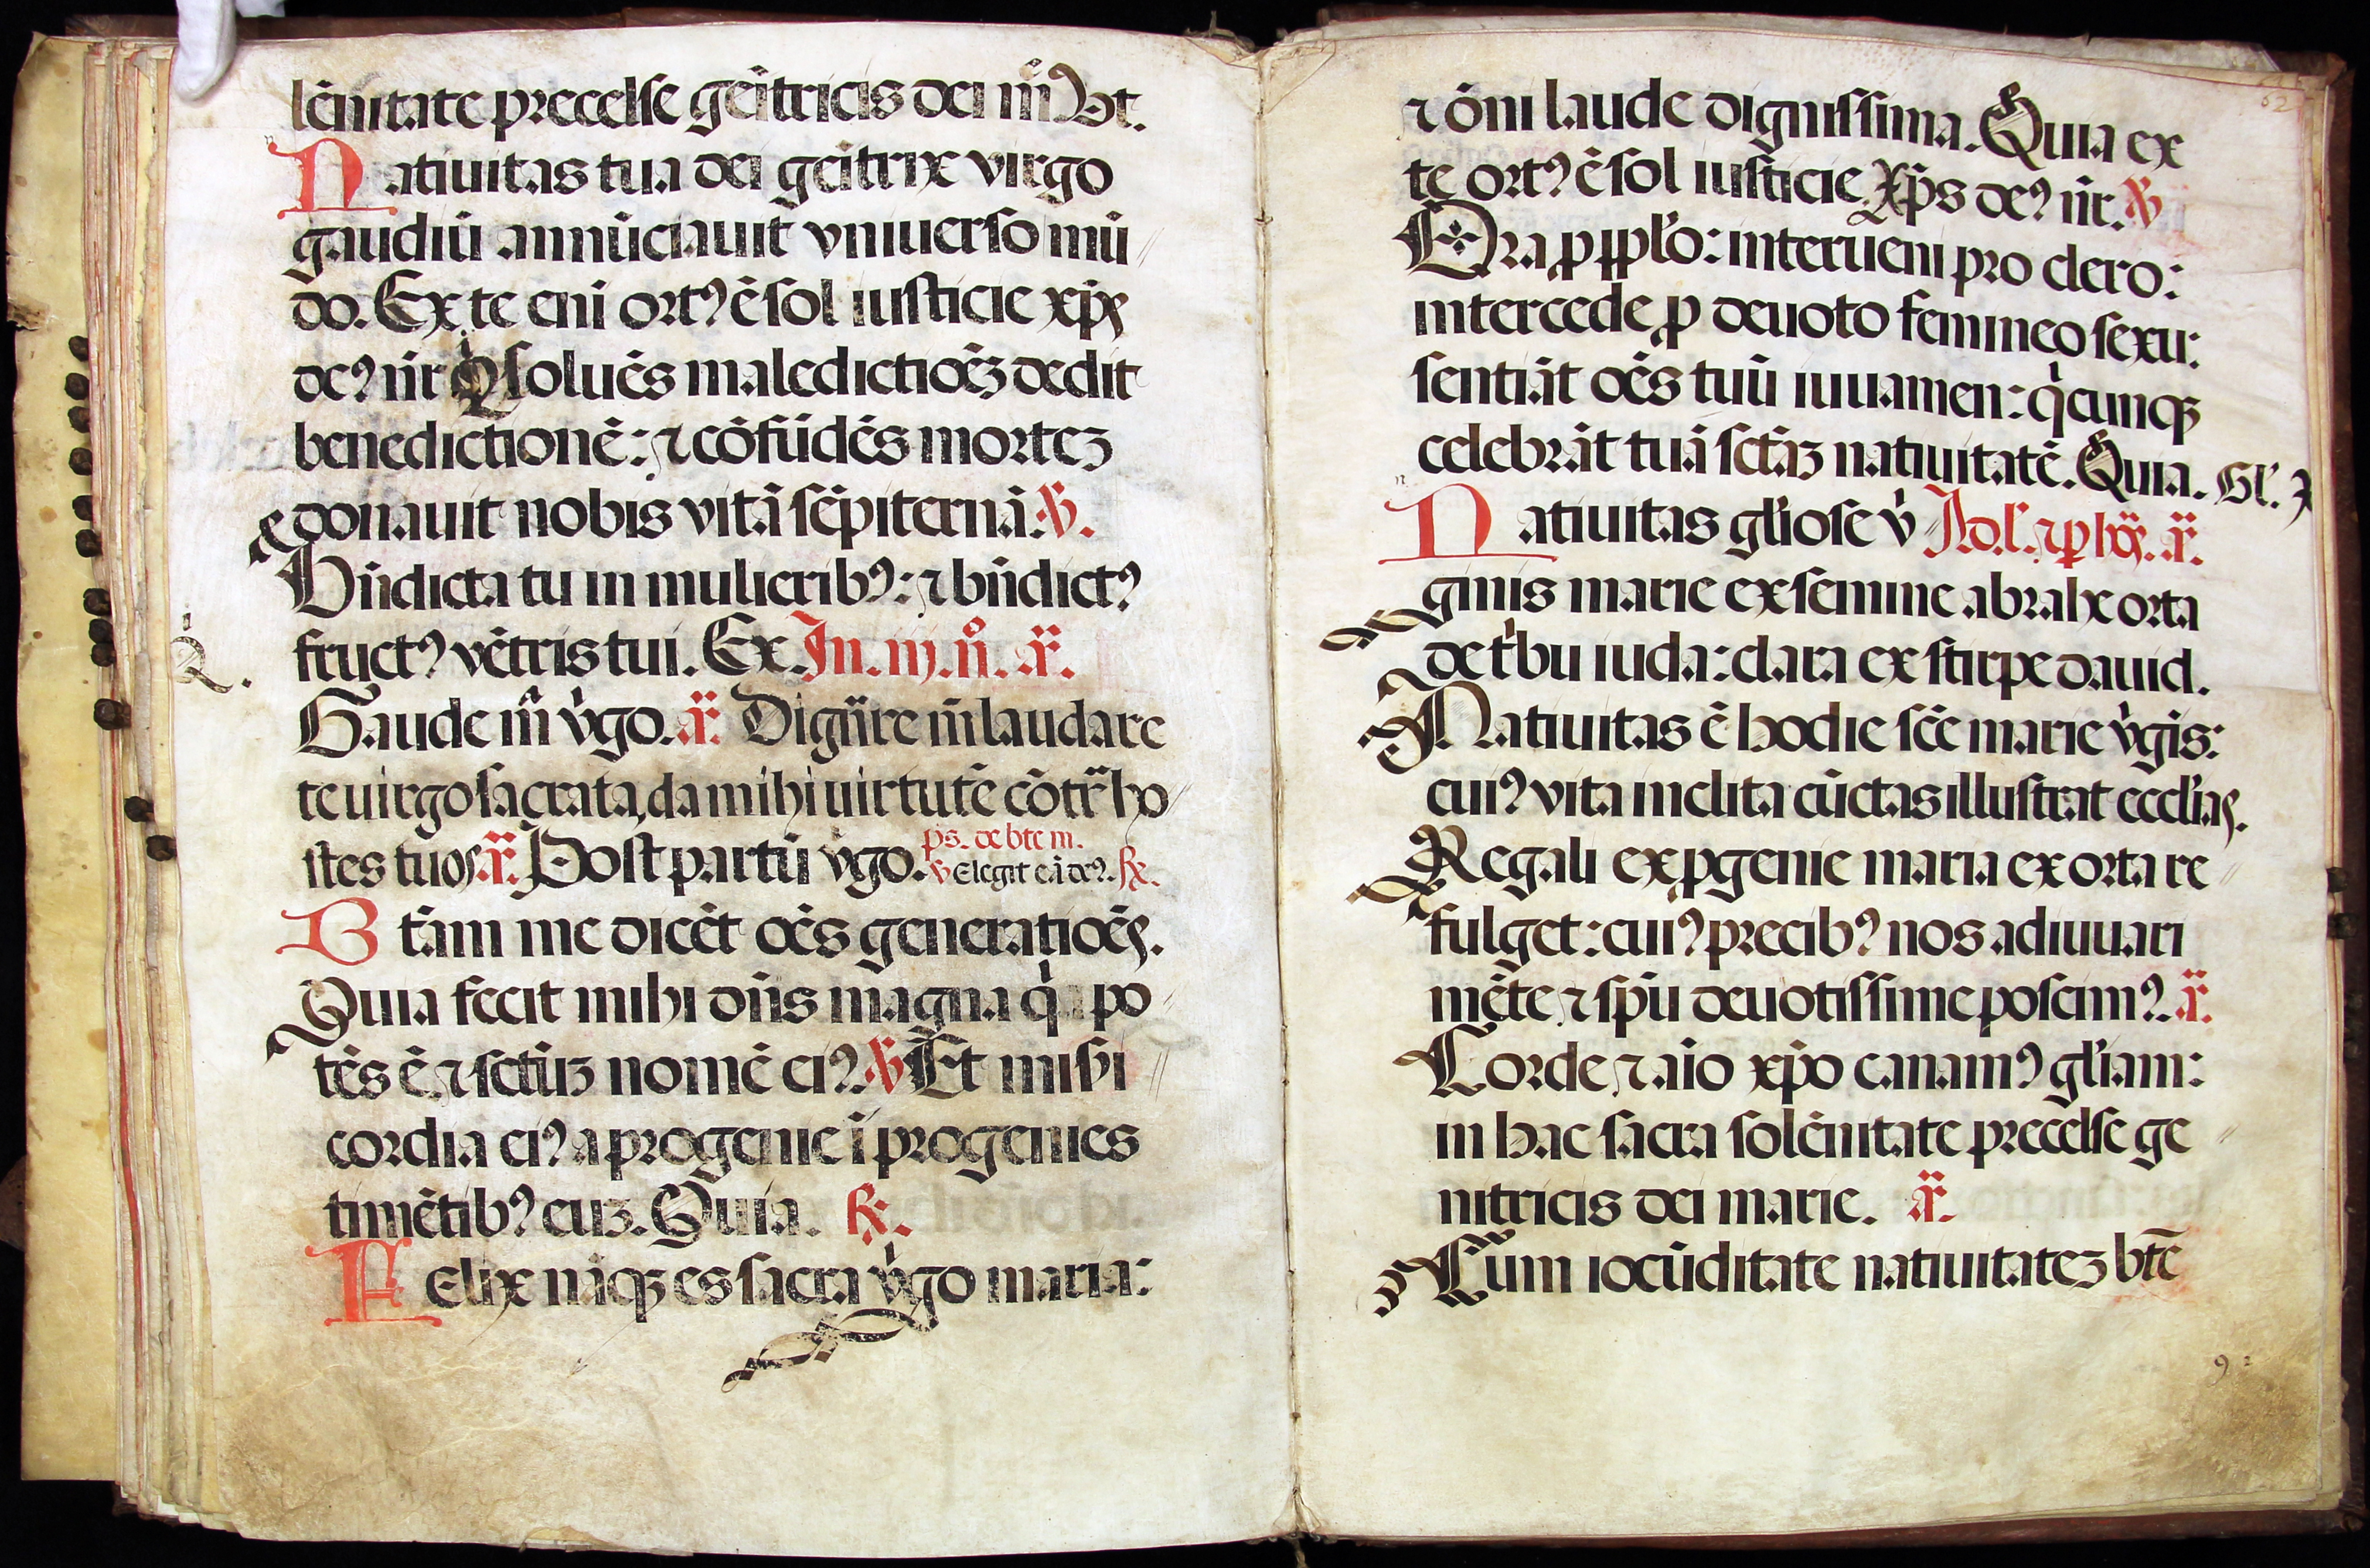 lēnitate precelse geītricis dei m̄ Vt.
Natiuitas tua dei geītrix virgo
gaudiū annūciauit vniuerso mū
do. Ex te enī ortꝰ ē sol iusticie xp̄s
deꝰ nr̄ Qͥ soluēs maledictioēꝫ dedit
benedictionē: ⁊ cōfūdēs morteꝫ
donauit nobis vitā sēpiternā. ℣.
Bn̄dicta tu in mulieribꝰ: ⁊ bn̄dictꝰ
fructꝰ vētris tui. Ex. In. iij. n̊. a͞r.
Gaude m̄ v̄go. a͞r. Dignāre m̄ laudare
te uirgo sacrata, da mihi uirtutē cōtrᵃ ho
stes tuos. a͞r. Post partū v̄go. ps. de bte m.
℣ Elegit eā deꝰ. ℟.
Btām me dicēt oēs generatioēs.
Quia fecit mihi dn̄s magna qͥa po
tēs ē ⁊ sctūꝫ nomē eiꝰ. ℣ Et misi
cordia eiꝰ a progenie ī progenies
timētibꝰ euꝫ. Quia. ℟.
FElix nāqꝫ es sacra v̄go maria:
⁊ ōni laude dignissima. Quia ex
te ortꝰ ē sol iusticie Xp̄s deꝰ nr̄. ℣
Ora ꝓ pplo̅: interueni pro clero:
intercede ꝓ deuoto femineo sexu:
sentiāt oēs tuū iuuamen: qͥcunqꝫ
celebrāt tuā sctāꝫ natiuitatē. Quia. Gl̄.
Natiuitas gl̄iose v̄ Ad.l. ⁊ ꝑ ho͞s. a͞r.
ginis marie ex semine abrahe orta
de tͥbu iuda: clara ex stirpe dauid.
Natiuitas ē hodie scē marie v̄gis:
cuiꝰ vita inclita cūctas illustrat eccl̄ias.
Regali ex ꝓgenie maria ex orta re
fulget: cuiꝰ precibꝰ nos adiuuari
mēte ⁊ spū deuotissime poscimꝰ. a͞r.
Corde ⁊ aīo xp̄o canamꝰ gl̄iam:
in hac sacra solēnitate precelse ge
nitricis dei marie. a͞r.
Cum iocūditate natiuitateꝫ btē
92